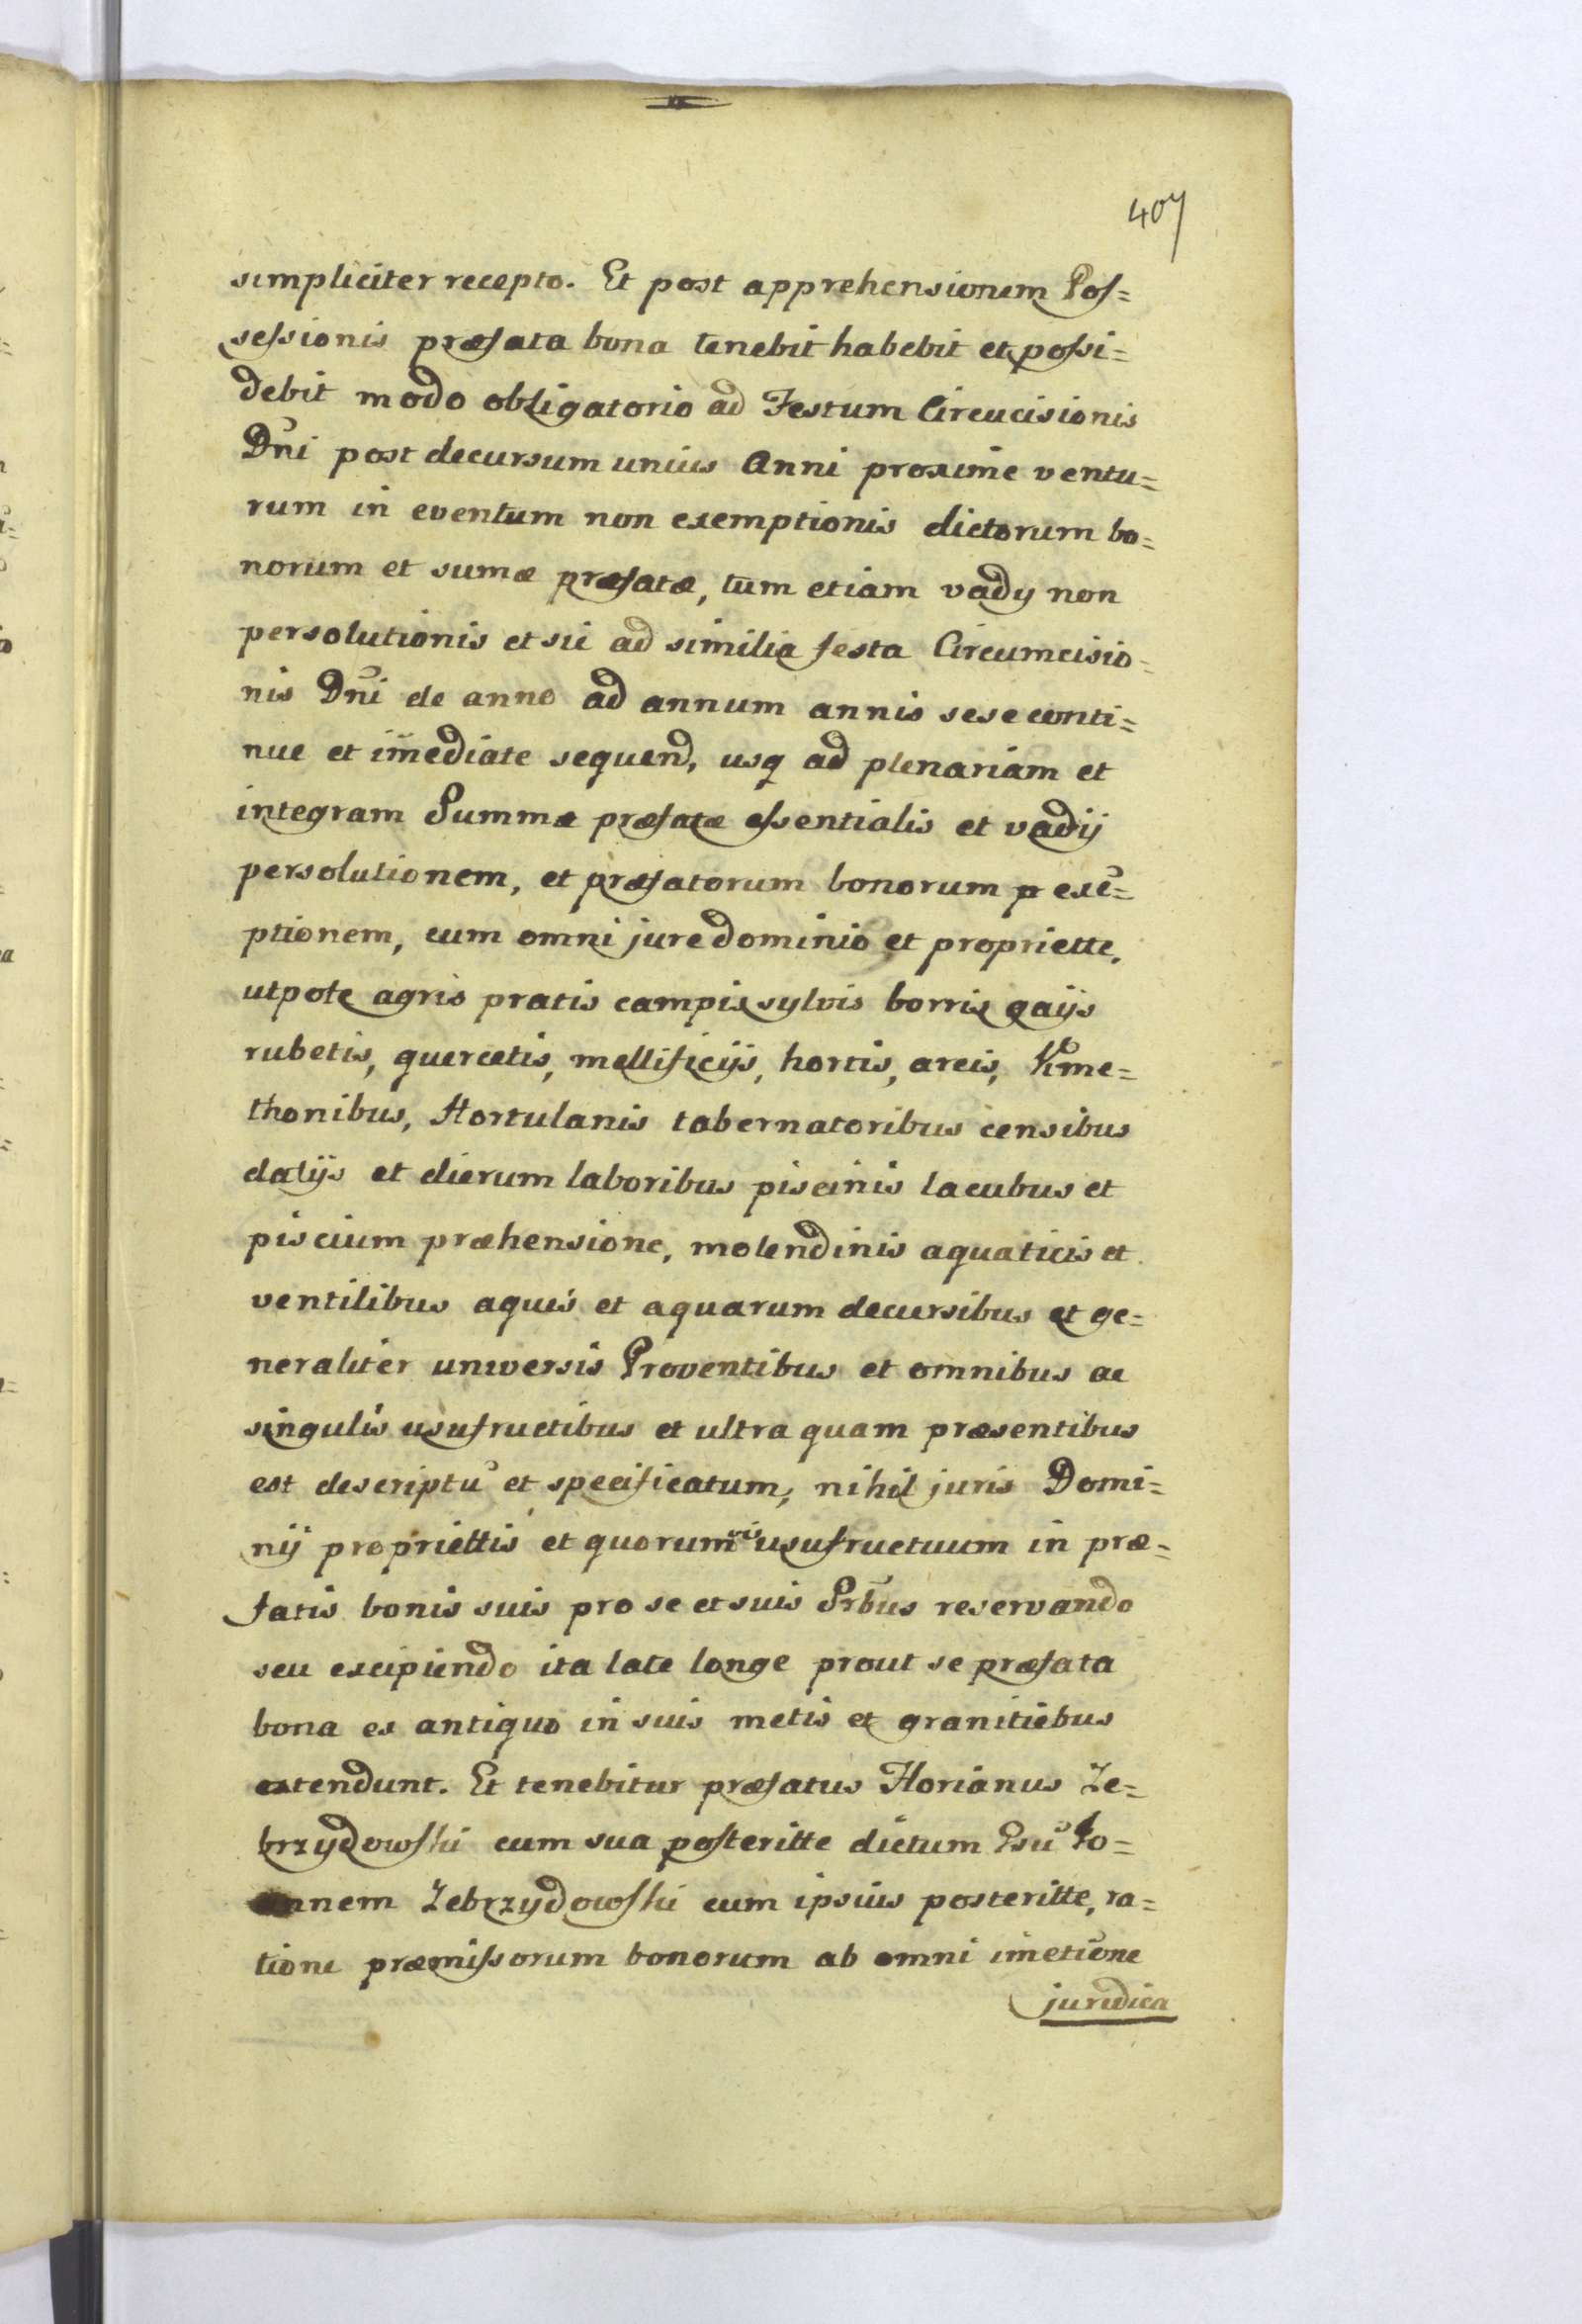 407
simpliciter recepto. Et post apprehensionem Pos=
sessionis præfata bona tenebit habebit et possi=
debit modo obligatorio ad Festum Circucisionis
Dni post decursum unius Anni proxime ventu=
rum in eventum non exemptionis dictorum bo=
norum et sumæ præfatæ, tum etiam vadÿ non
persolutionis et sic ad similia festa Circumcisio=
nis Dni de anno ad annum annis sese conti=
nue et imediate sequend, usq ad plenariam et
integram Summæ præfatæ essentialis et vadij
persolutionem, et præfatorum bonorum p exē=
ptionem, cum omni jure dominio et propriette,
utpote agris pratis campis sylvis borris gaijs
rubetis, quercetis, mellificijs, hortis, areis, Kme=
thonibus, Hortulanis tabernatoribus censibus
datijs et dierum laboribus piscinis lacubus et
piscium præhensione, molendinis aquaticis et
ventilibus aquis et aquarum decursibus et ge=
neraliter universis Proventibus et omnibus ac
singulis usufructibus et ultra quam præsentibus
est descriptū et specificatum, nihil juris Domi=
nij propriettis et quorumvis usufructuum in præ=
fatis bonis suis pro se et suis Srbus reservando
seu excipiendo ita late longe prout se præfata
bona ex antiquo in suis metis et granitiebus
extendunt. Et tenebitur præfatus Florianus Ze=
brzydowski cum sua posteritte dictum Gsū Jo=
annem Zebrzydowski cum ipsius posteritte, ra=
tione præmissorum bonorum ab omni imetione
juridica